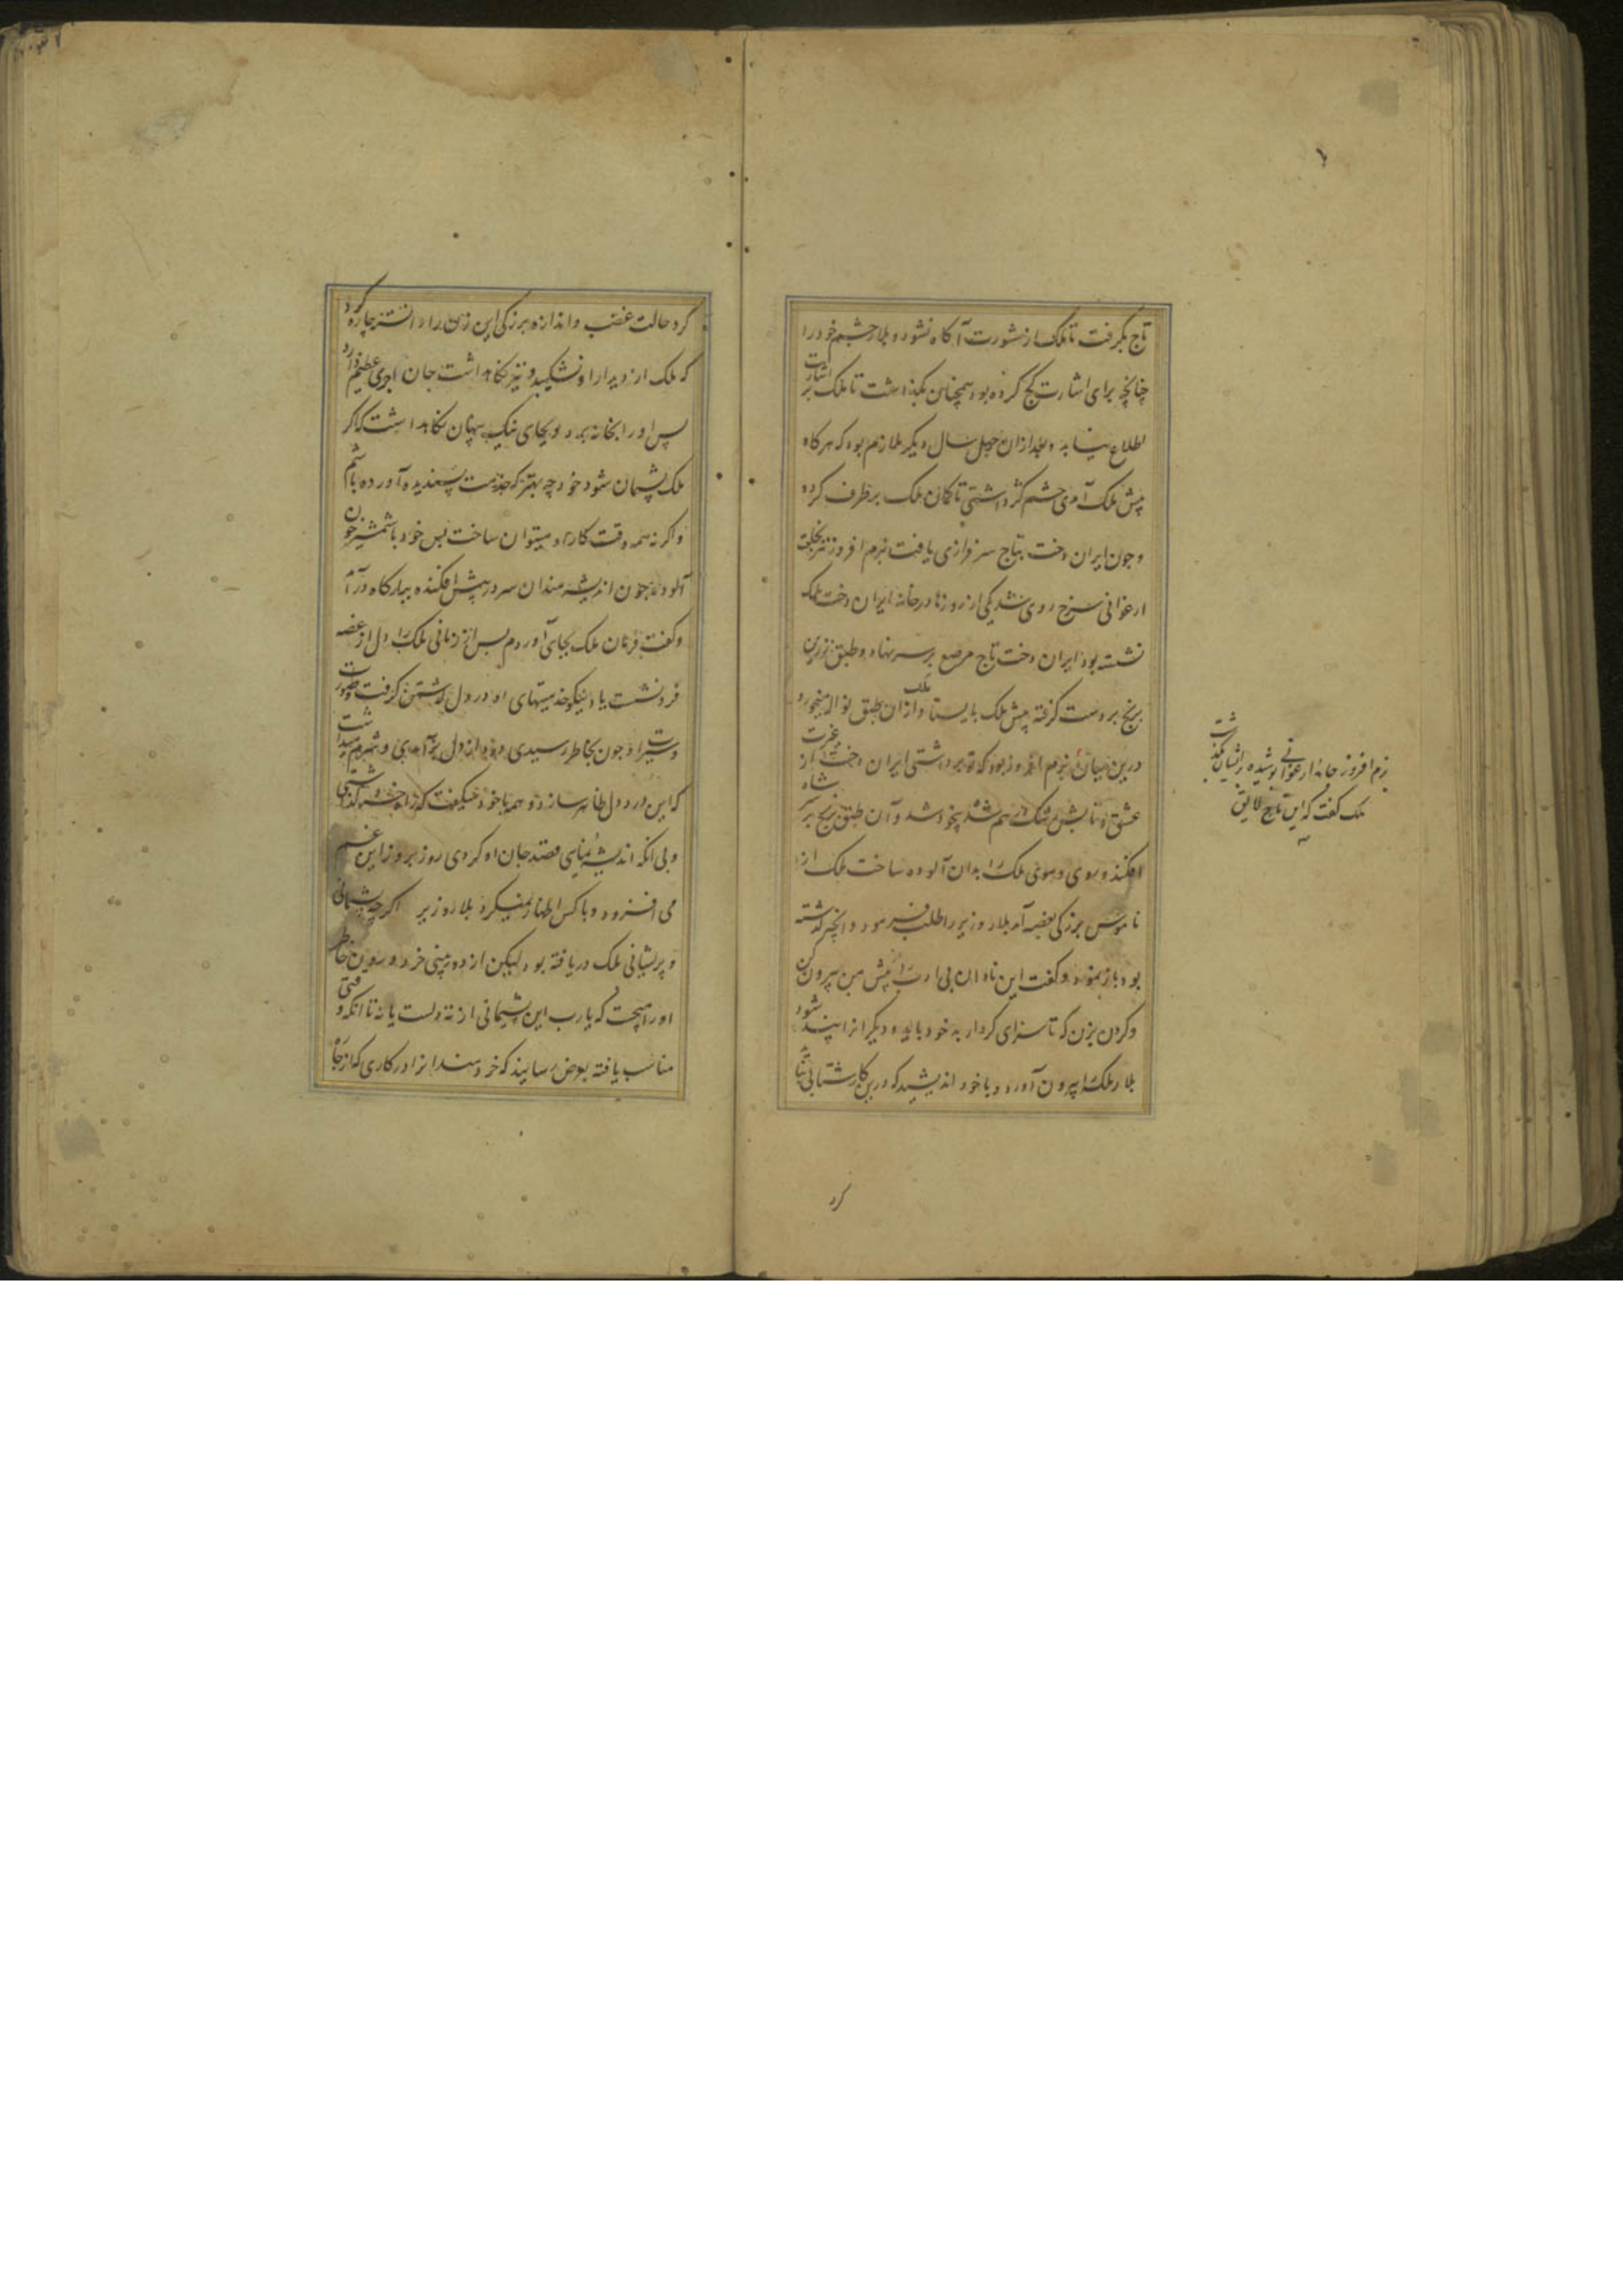 تاج بگرفت تا ملک از مشورت آگاه نشود و بلار چشم خود را
چنانچه برای اشارت کج کرده بود همچنان بگذاشت تا ملک بر اشارت
اطلاع نیابد و بعد ازان چهل سال دیگر ملازم بود که هر کاه
پیش ملک آمدی چشم کژ داشتی تا کمان ملک برطرف کرده
و چون ایران دخت بتاج سرفرازی یافت بزم افروز نیز بخلعت
ارغوانی سرخ روی شد یکی از روزها در خانه ایران دخت ملک
نشسته بود ایران دخت تاج مرصع بر سر نهاده و طبق زرین
برنج بر دست گرفته پیش ملک بایستاد و ملک ازان طبق نواله میخورد
درین میان بزم افروز بود که تو برداشتی ایران دخت را از غیرت
عشق و تابش رشک درهم شده بیخود شد و آن طبق برنج بر سر شاه
افکند و روی و موی ملک را بدان آلوده ساخت ملک از
ناموس بزرکی بغضب آمد بلار وزیر را طلب فرمود و آنچه گذشته
بود باز نمود و گفت این نادان بی ادب را از پیش من بیرون کن
و گردن بزن که تا سزای کردار بد خود بیابد و دیگر انرا پند شود
بلار ملکه را بیرون آورد و با خود اندیشید که درین کار شتابی نشاید
کرد
بزم افروز جامه ارغوانی پوشیده بر ایشان بگذشت
ملک گفت که این تاج لایق
کرد حالت غضب و اندازه بزرکی این زن را دانسته چاره کرد
که ملک از دیدار او نشکیبد و نیز نگاهداشت جان اجری عظیم دارد
پس او را بخانه برد و بجای نیک پنهان نگاهداشت که اگر
ملک پشیمان شود خود چه بهتر که خدمت پسندیده آورده باشم
و اگر نه همه وقت کار او میتوان ساخت پس خود با شمشیر خون
آلوده چون اندیشه مندان سر در پیش افکنده ببارگاه درآمد
و گفت فرمان ملک بجای آوردم پس از زمانی ملک را دل از غضب
فرو نشست یاد نیکو خدمتیهای او در دل گشتن گرفت و صورت
و سیرت او چون بخاطر رسیدی دود از دل برآمدی و شرم میداشت
که این درد دل ظاهر سازد و همه با خود میگفت که
و بی انکه اندیشه نمایی قصد جان او کردی روز بروز این غم
می افزود و با کس اظهار نمیکرد بلار وزیر اگر چه پشیمانی
و پریشانی ملک دریافته بود لیکن از دوربینی خرد و
او را می جست که یارب این پشیمانی از ته دلست یا نه تا انکه وقتی
مناسب یافته بعرض رسانید که خردمندانرا در کاری که از